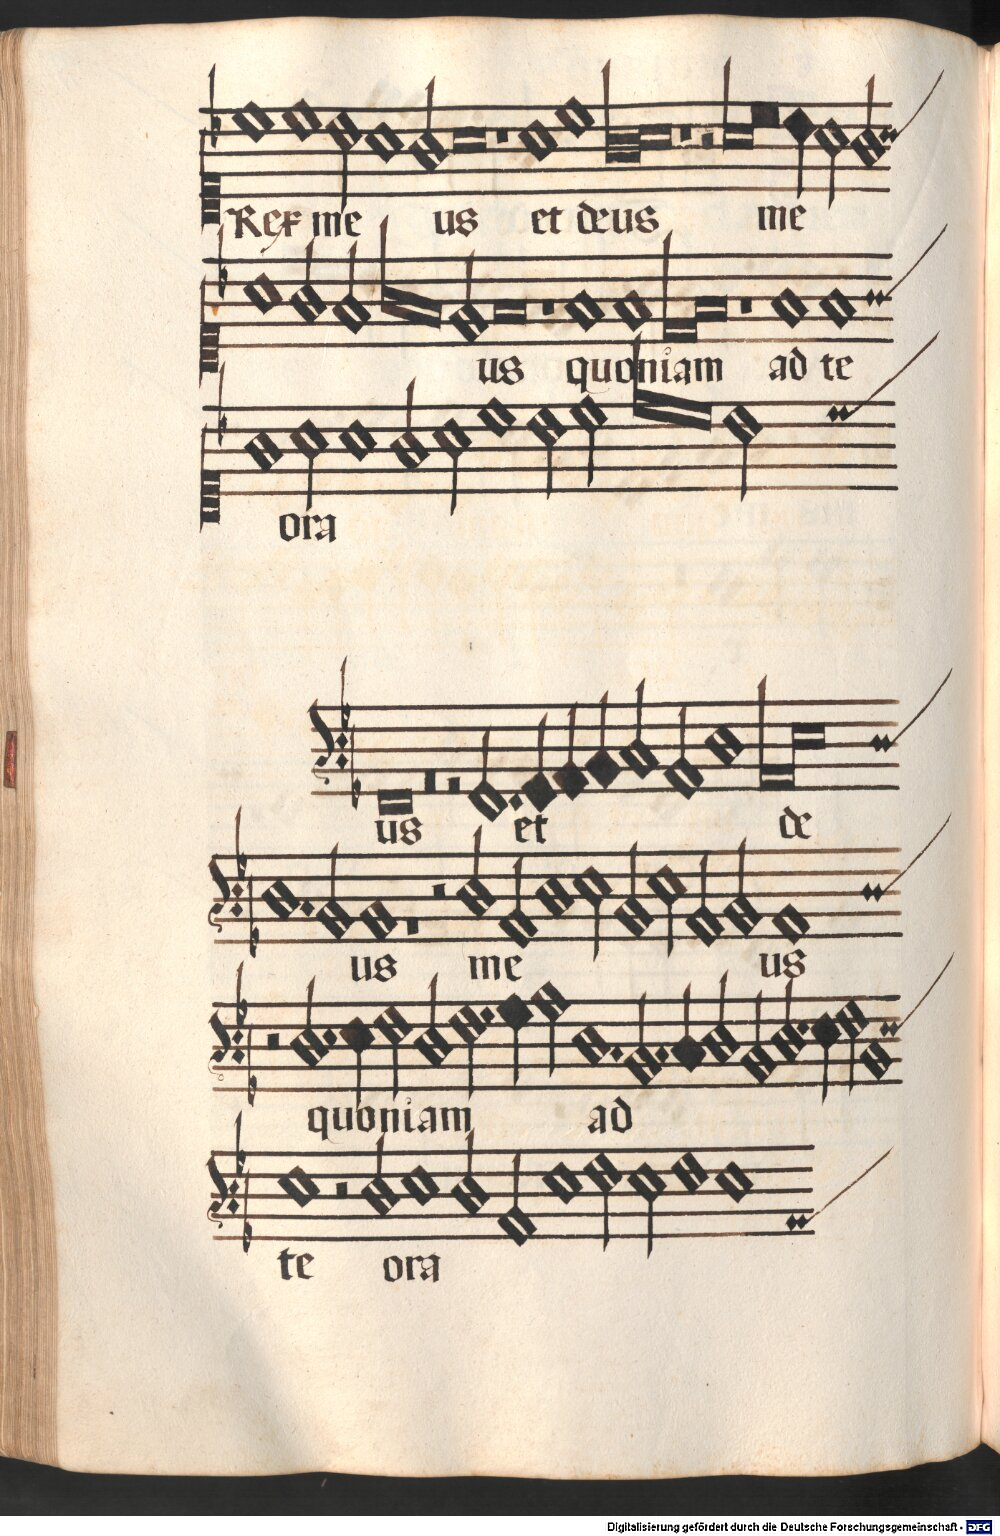 Rex me us et deus me
us quoniam ad te
ora
us et de
us me us
quoniam ad
te ora
Digitalisierung gefördert durch die Deutsche Forschungsgemeinschaft - DFG